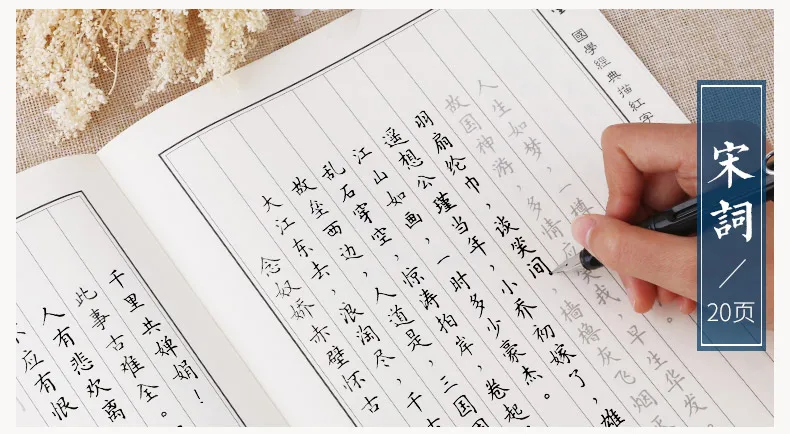 應有恨
人有悲欢离
此事古难全。
千里共婵娟!
念奴娇 赤壁怀古
大江东去,浪淘尽,千
故垒西边,人道是,三国
乱石穿空,惊涛拍岸,卷起
江山如画,一时多少豪杰。
遥想公瑾当年,小乔初嫁了,雄
羽扇纶巾,谈笑间,樯橹灰飞烟灭
故国神游,多情应笑我,早生华发。
人生如梦,一樽
國學經典描紅字
宋詞
20页